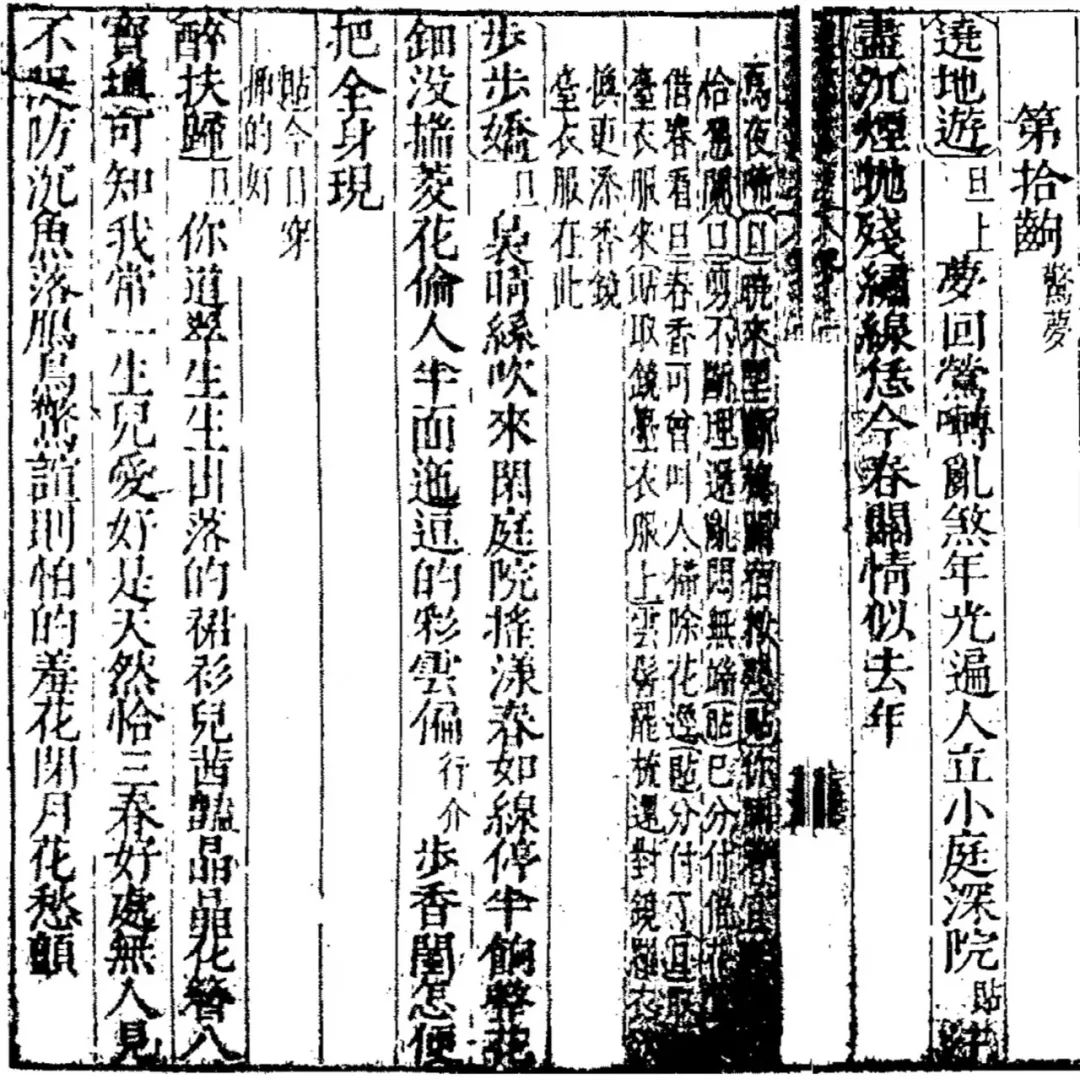 第拾齣驚夢
遶地遊旦上夢回鶯囀亂煞年光遍人立小庭深院貼
盡沉煙抛殘繡線恁今春關情似去年
烏夜啼旦曉來望斷梅關宿粧殘貼你
恰凭闌旦剪不斷理還亂悶無端貼巳分付催
借春看旦春香可曾叫人掃除花逕貼分付了旦取
臺衣服來貼取鏡臺衣服上雲髻罷梳還對鏡羅衣
換更添香鏡
臺衣服在此
步步嬌旦裊晴絲吹來閑庭院搖漾春如線停半餉整花
鈿没揣菱花偷人半面迤逗的彩雲偏行介步香閨怎便
把全身現
貼今日穿
揷的好
醉扶歸旦你道翠生生出落的裙衫兒茜艷晶晶花簪八
寳塡可知我常一生兒愛好是天然恰三春好處無人見
不隄防沉魚落鴈鳥驚諠則怕的羞花閉月花愁顫